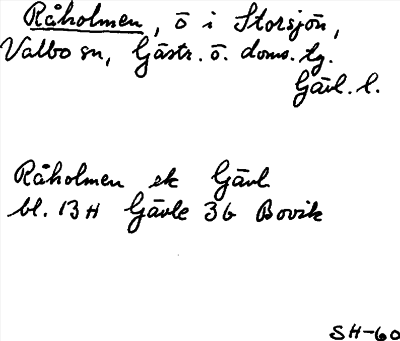 Råholmen, ö i Storsjön,
Valbo sn, Gästr. ö. doms. tg.
Gävl. l.
Råholmen ek Gävl
bl. 13H Gävle 3b Bovik
SH-60